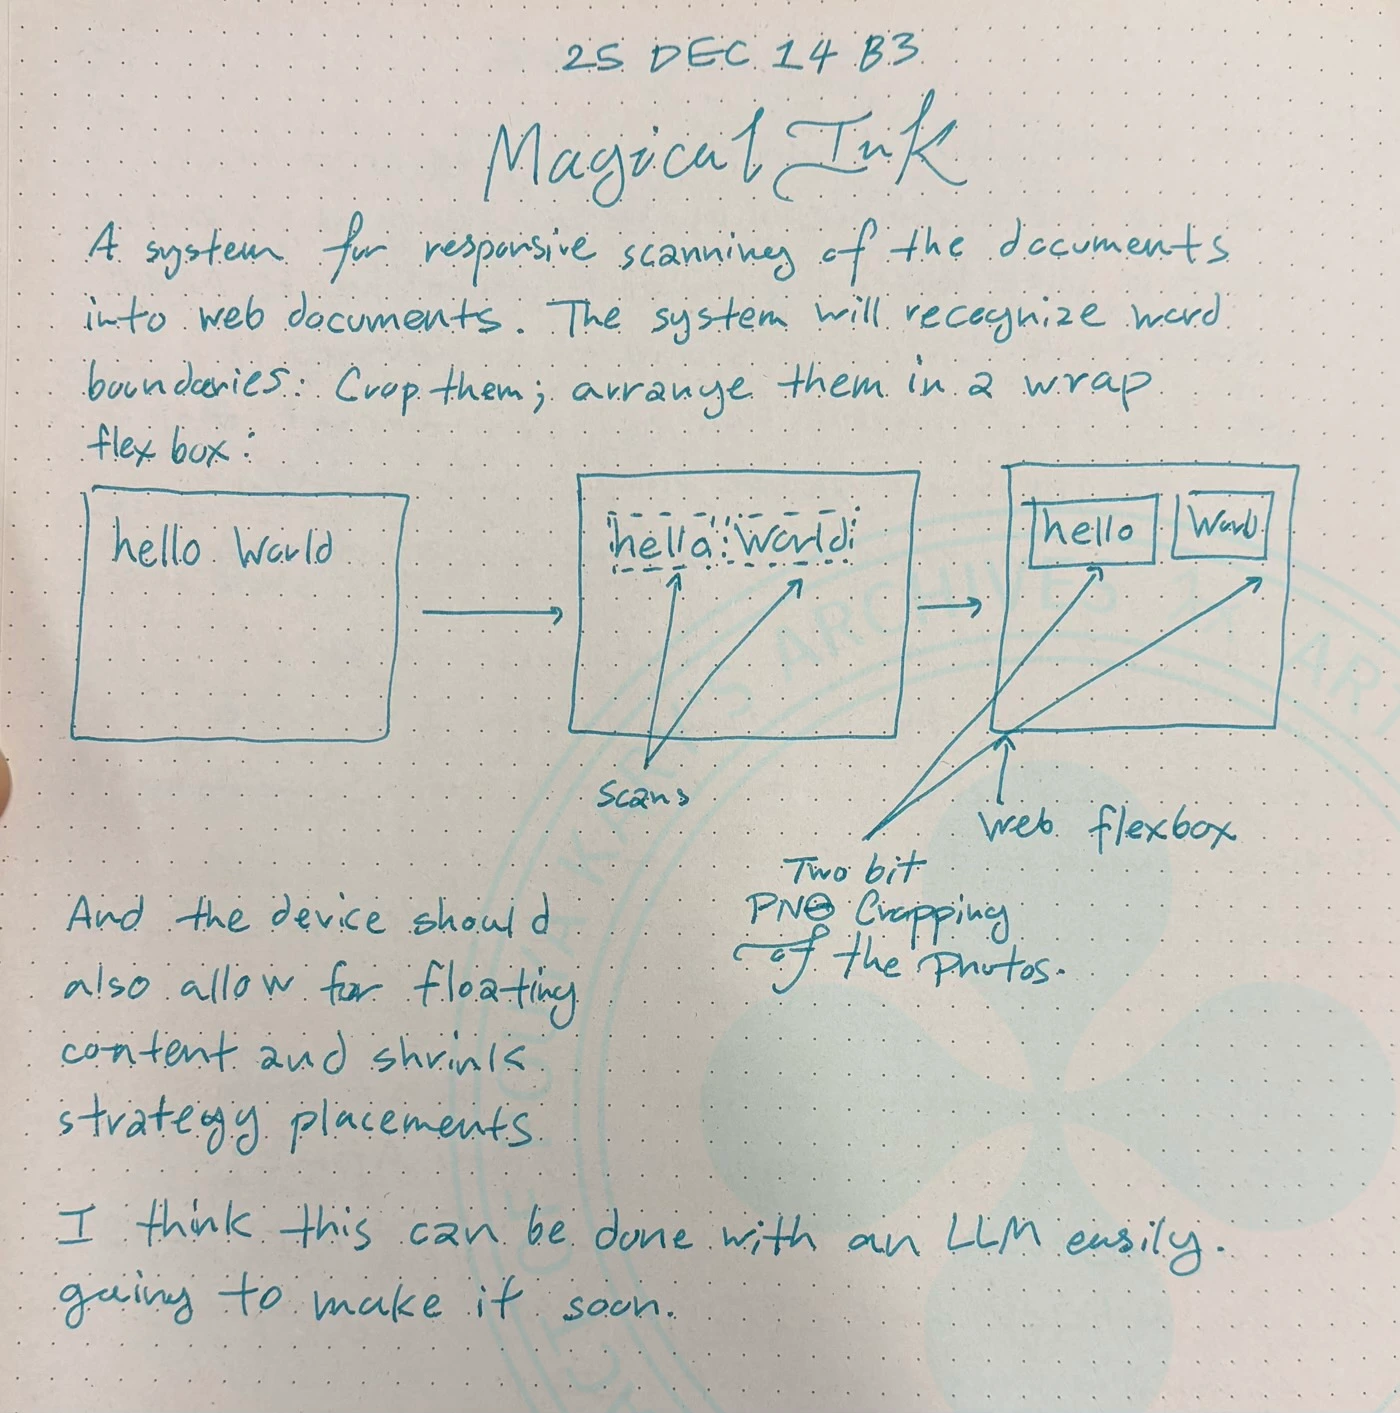 25 DEC 14 B3
Magical Ink
A system for responsive scanning of the documents
into web documents. The system will recognize word
boundaries: Crop them; arrange them in a wrap
flex box:
hello World
hello World
hello World
scans
web flexbox
Two bit
PNG Cropping
of the Photos.
And the device should
also allow for floating
content and shrink
strategy placements
I think this can be done with an LLM easily.
going to make it soon.
ARCHIVES